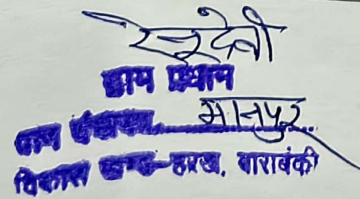 रेनू देवी
ग्राम प्रधान
ग्राम पंचायत मानपुर
विकास खण्ड-हरख, बाराबंकी